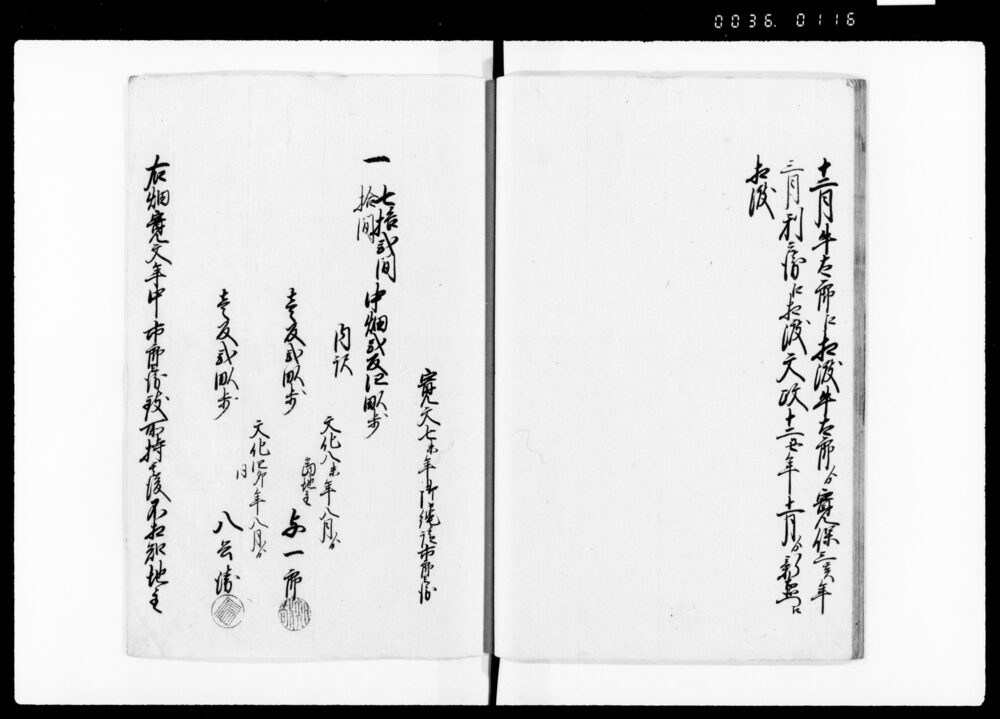 0036. 0116
十二月牛太郎江相渡牛太郎ゟ寛保三亥年
三月利兵衛江相渡文政十二丑年十月ゟ新兵衛江
相渡
寛文七未年御縄請市郎兵衛
一 七拾弐間
拾間 中畑弐反四畝歩
内訳
文化八未年八月ゟ
壱反弐畝歩 当地主 与一郎
文化四卯年八月ゟ
壱反弐畝歩 同 八公衛
右畑寛文年中市郎兵衛所持之後不相知地主